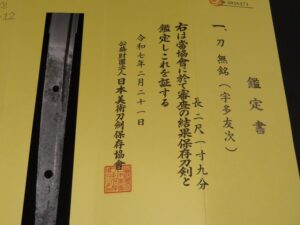 鑑定書
一、刀 無銘(宇多友次)
長 二尺一寸九分
右は當協會に於て審査の結果保存刀剣と
鑑定しこれを証する
令和七年二月二十一日
公益財団法人 日本美術刀剣保存協會